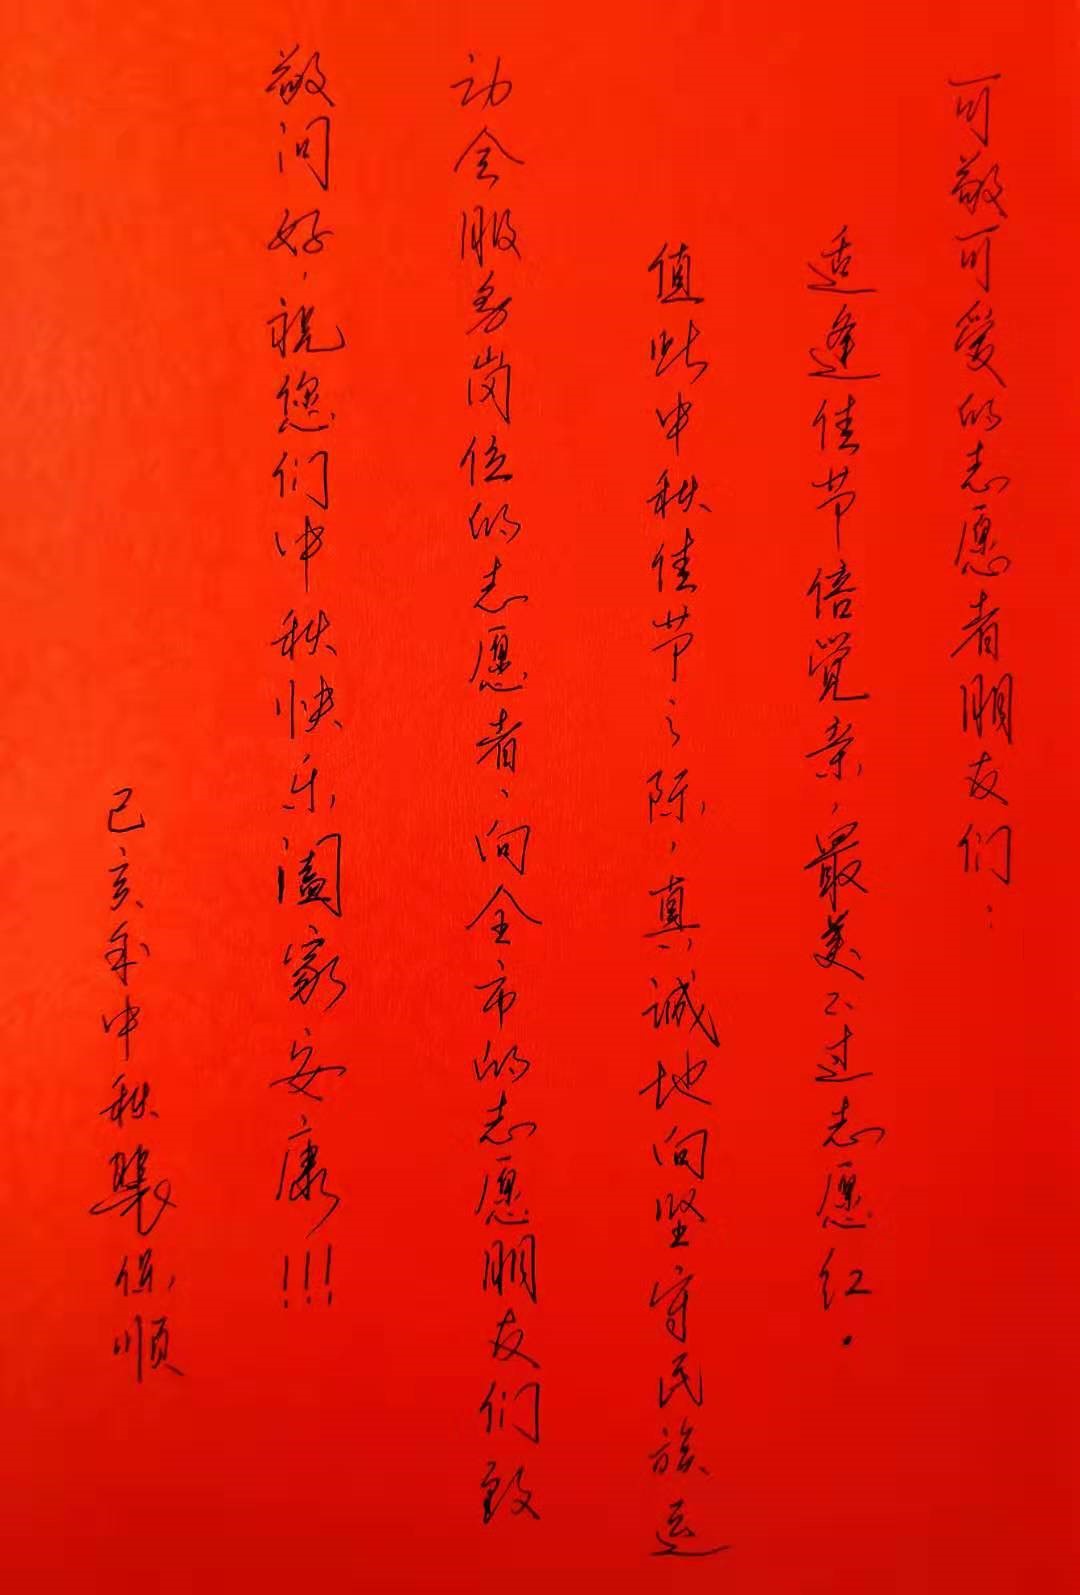 可敬可爱的志愿者朋友们：
适逢佳节倍覺亲，最美不过志愿红。
值此中秋佳节之际，真诚地向坚守民族运
动会服务岗位的志愿者、向全市的志愿朋友们致
敬问好，祝您们中秋快乐阖家安康!!!
己亥年中秋 保顺